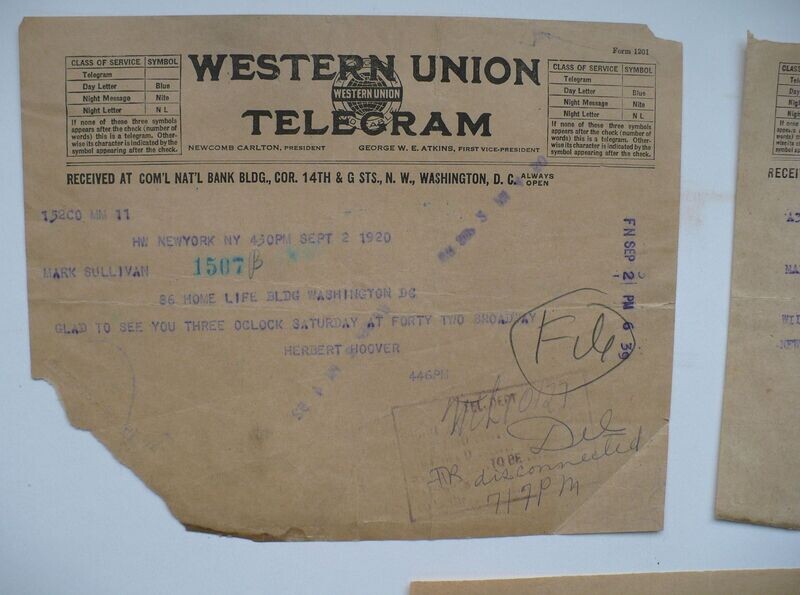 Form 1201
CLASS OF SERVICE SYMBOL
Telegram
Day Letter Blue
Night Message Nite
Night Letter N L
If none of these three symbols
appears after the check (number of
words) this is a telegram. Other-
wise its character is indicated by the
symbol appearing after the check.
WESTERN UNION
WESTERN UNION
TELEGRAM
NEWCOMB CARLTON, PRESIDENT GEORGE W. E. ATKINS, FIRST VICE-PRESIDENT
CLASS OF SERVICE SYMBOL
Telegram
Day Letter Blue
Night Message Nite
Night Letter N L
If none of these three symbols
appears after the check (number of
words) this is a telegram. Other-
wise its character is indicated by the
symbol appearing after the check.
RECEIVED AT COM'L NAT'L BANK BLDG., COR. 14TH & G STS., N. W., WASHINGTON, D. C. ALWAYS OPEN
152CO MM 11
HW NEWYORK NY 430PM SEPT 2 1920
MARK SULLIVAN 1507
86 HOME LIFE BLDG WASHINGTON DC
GLAD TO SEE YOU THREE OCLOCK SATURDAY AT FORTY TWO BROADWAY
HERBERT HOOVER
446PM
FN SEP 2 PM 6 39
File
TEL. DEPT
TO BE
disconnected
717PM